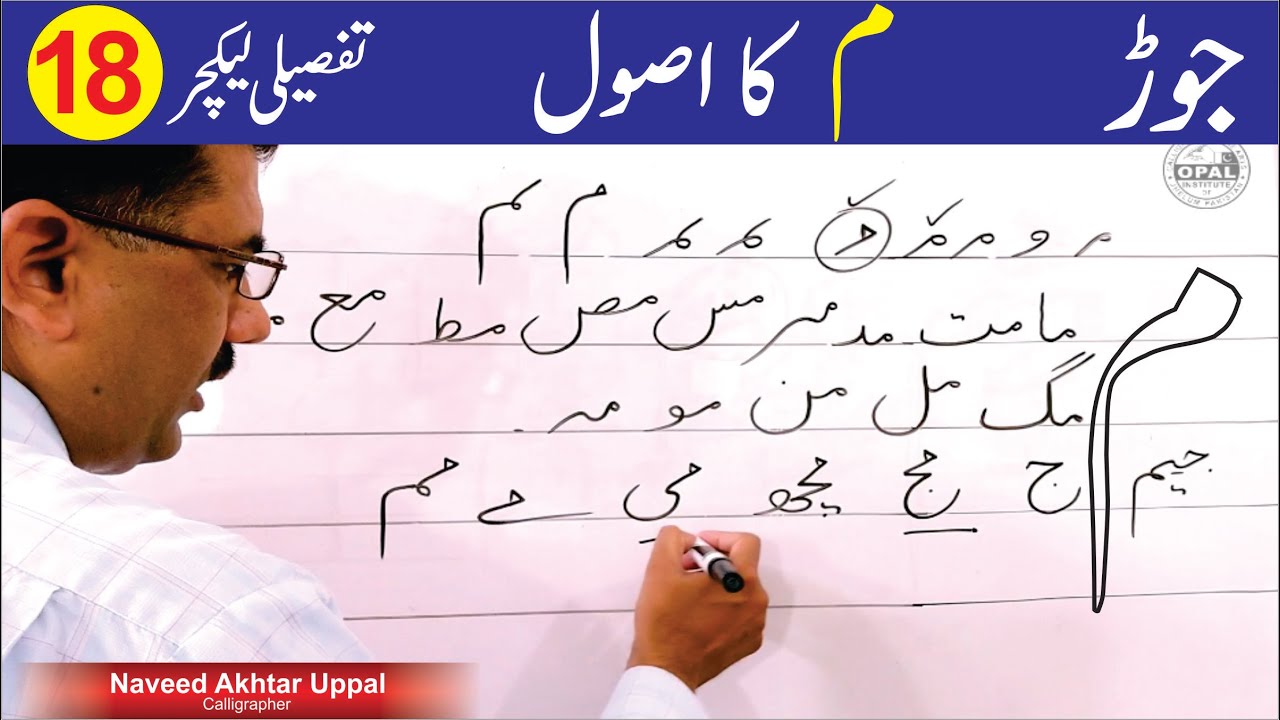 جوڑ م کا اصول تفصیلی لیکچر 18
OPAL
INSTITUTE
OF
JHELUM PAKISTAN
م
ما مت مد مر مس مص مط مع
مگ مل من مو مہ
جیم ج مج می مے مم
Naveed Akhtar Uppal
Calligrapher